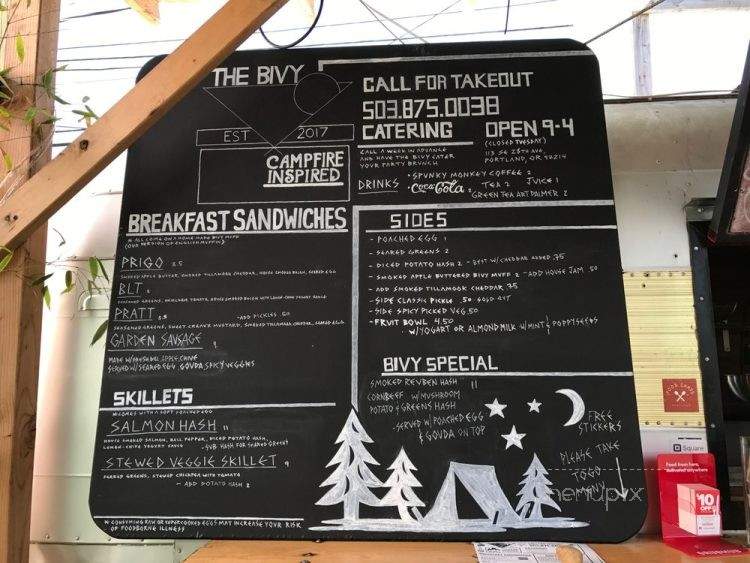 THE BIVY
EST 2017
CAMPFIRE
INSPIRED
CALL FOR TAKEOUT
503.875.0038
CATERING
OPEN 9-4
(CLOSED TUESDAY)
113 SE 28TH AVE,
PORTLAND, OR 97214
CALL A WEEK IN ADVANCE
AND HAVE THE BIVY CATER
YOUR PARTY BRUNCH
DRINKS
· SPUNKY MONKEY COFFEE 2
· Coca-Cola 2 TEA 2 JUICE 1
GREEN TEA ANT PALMER 2
BREAKFAST SANDWICHES
ALL COME ON A HOME MADE BIVY MUFF
(OUR VERSION OF ENGLISH MUFFIN)
PRIGO
SMOKED APPLE BUTTER, SMOKED TILLAMOOK CHEDDAR, HOUSE SMOKED BACON, SEARED EGG
BLT
PRATT
-ADD PICKLES .50
SEASONED GREENS, SWEET CREAMY MUSTARD, SMOKED TILLAMOOK CHEDDAR, SEARED EGG
GARDEN SAUSAGE
SERVED W/SEARED EGG GOUDA, SPICY VEGGIES
SKILLETS
COMES WITH A SOFT POACHED EGG
SALMON HASH 11
HOUSE SMOKED SALMON, BELL PEPPER, DICED POTATO HASH,
LEMON-CHIVE YOGURT SAUCE -SUB HASH FOR SEARED GREENS
STEWED VEGGIE SKILLET 9
SEARED GREENS, STEWED CHICKPEA WITH TOMATO
- ADD POTATO HASH 2
CONSUMING RAW OR UNDERCOOKED EGGS MAY INCREASE YOUR RISK
OF FOODBORNE ILLNESS
SIDES
- POACHED EGG 1
- SEARED GREENS 2
- DICED POTATO HASH 2 - BEST W/ CHEDDAR ADDED .75
- SMOKED APPLE BUTTERED BIVY MUFF 2 - ADD HOUSE JAM .50
- ADD SMOKED TILLAMOOK CHEDDAR .75
- SIDE CLASSIC PICKLE .50 SOLD OUT
- SIDE SPICY PICKED VEG .50
- FRUIT BOWL 4.50
W/YOGURT OR ALMOND MILK W/MINT & POPPYSEEDS
BIVY SPECIAL
SMOKED REUBEN HASH 11
CORNBEEF W/ MUSHROOM
POTATO & GREENS HASH
-SERVED W/ POACHED EGG
& GOUDA ON TOP
FREE
STICKERS
PLEASE TAKE
TOGO
MENU
menupix
Square
Food from here,
delivered anywhere
$10
OFF